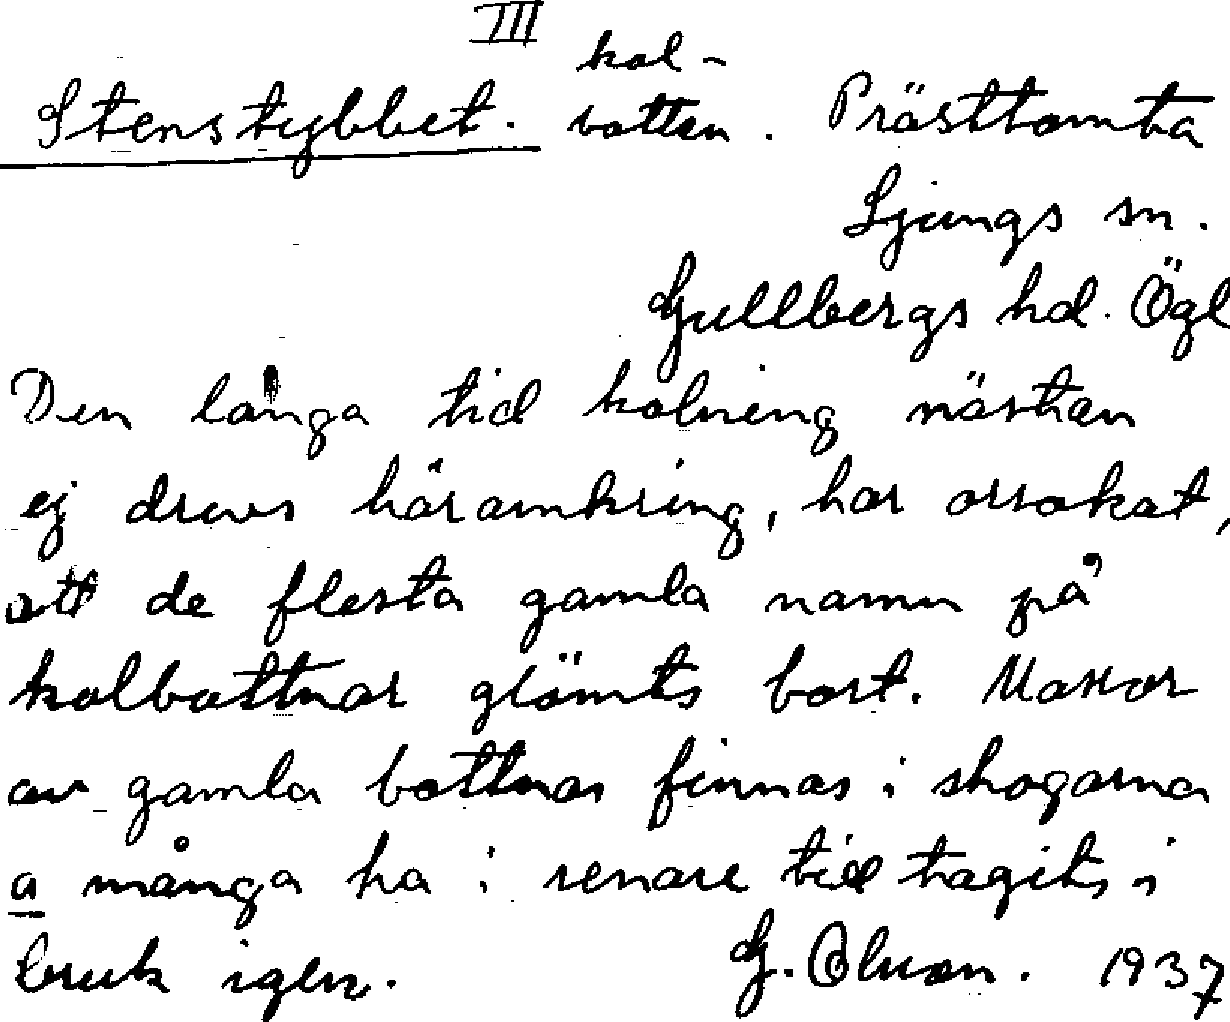 III
kol-
Stenstybbet. botten. Prästtomta
Ljungs sn.
Gullbergs hd. Ögl
Den långa tid kolning nästan
ej drevs häromkring, har orsakat,
att de flesta gamla namn på
kolbottnar glömts bort. Massor
av gamla bottnar finnas i skogarna
a många ha i senare tid tagits i
bruk igen. G. Olsson. 1937